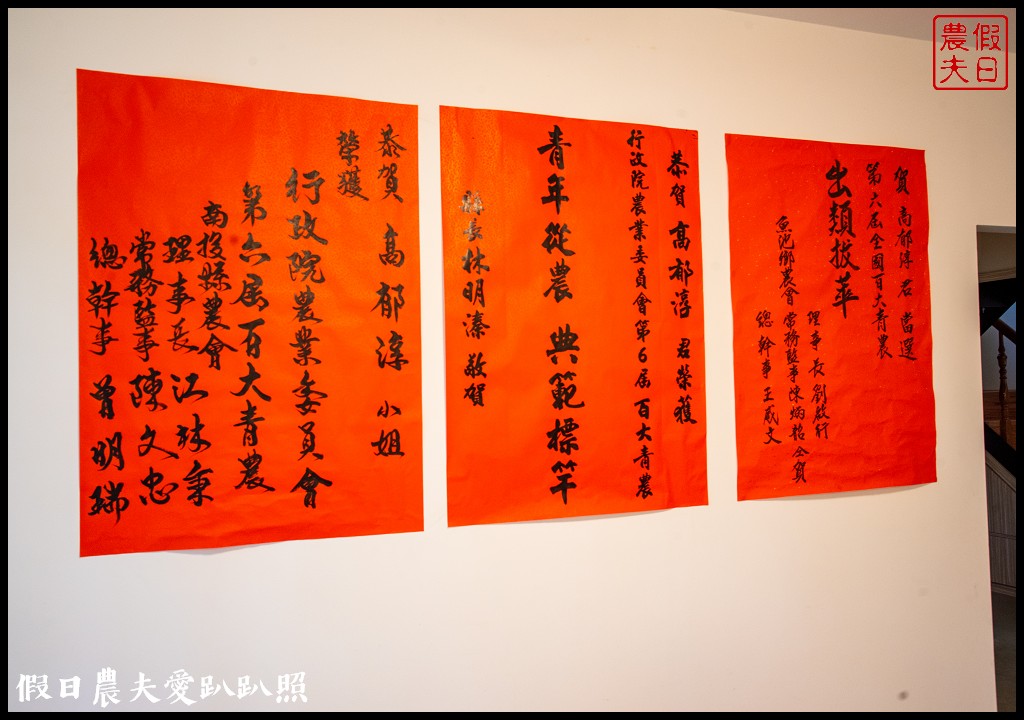 恭賀 高郁淳 小姐
榮獲
行政院農業委員會
第六屆百大青農
南投縣農會
理事長 江林秉
常務監事 陳文忠
總幹事 曾明瑞
恭賀 高郁淳 君榮獲
行政院農業委員會第6屆百大青農
青年從農 典範標竿
縣長林明溱 敬賀
賀 高郁淳 君 當選
第六屆全國百大青農
出類拔萃
魚池鄉農會
理事長 劉啟行
常務監事 陳炳 仝賀
總幹事 王威文
假日
農夫
假日農夫愛趴趴照